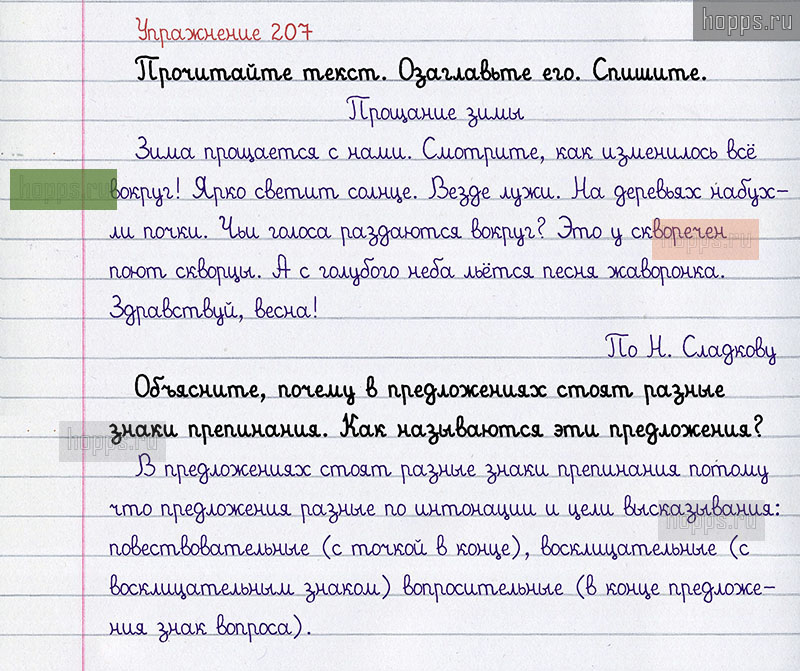 hopps.ru
Упражнение 207
Прочитайте текст. Озаглавьте его. Спишите.
Прощание зимы
Зима прощается с нами. Смотрите, как изменилось всё
hopps.ru
вокруг! Ярко светит солнце. Везде лужи. На деревьях набух-
ли почки. Чьи голоса раздаются вокруг? Это у скворечен
hopps.ru
поют скворцы. А с голубого неба льётся песня жаворонка.
Здравствуй, весна!
По Н. Сладкову
Объясните, почему в предложениях стоят разные
знаки препинания. Как называются эти предложения?
hopps.ru
В предложениях стоят разные знаки препинания потому
что предложения разные по интонации и цели высказывания:
hopps.ru
повествовательные (с точкой в конце), восклицательные (с
восклицательным знаком) вопросительные (в конце предложе-
ния знак вопроса).